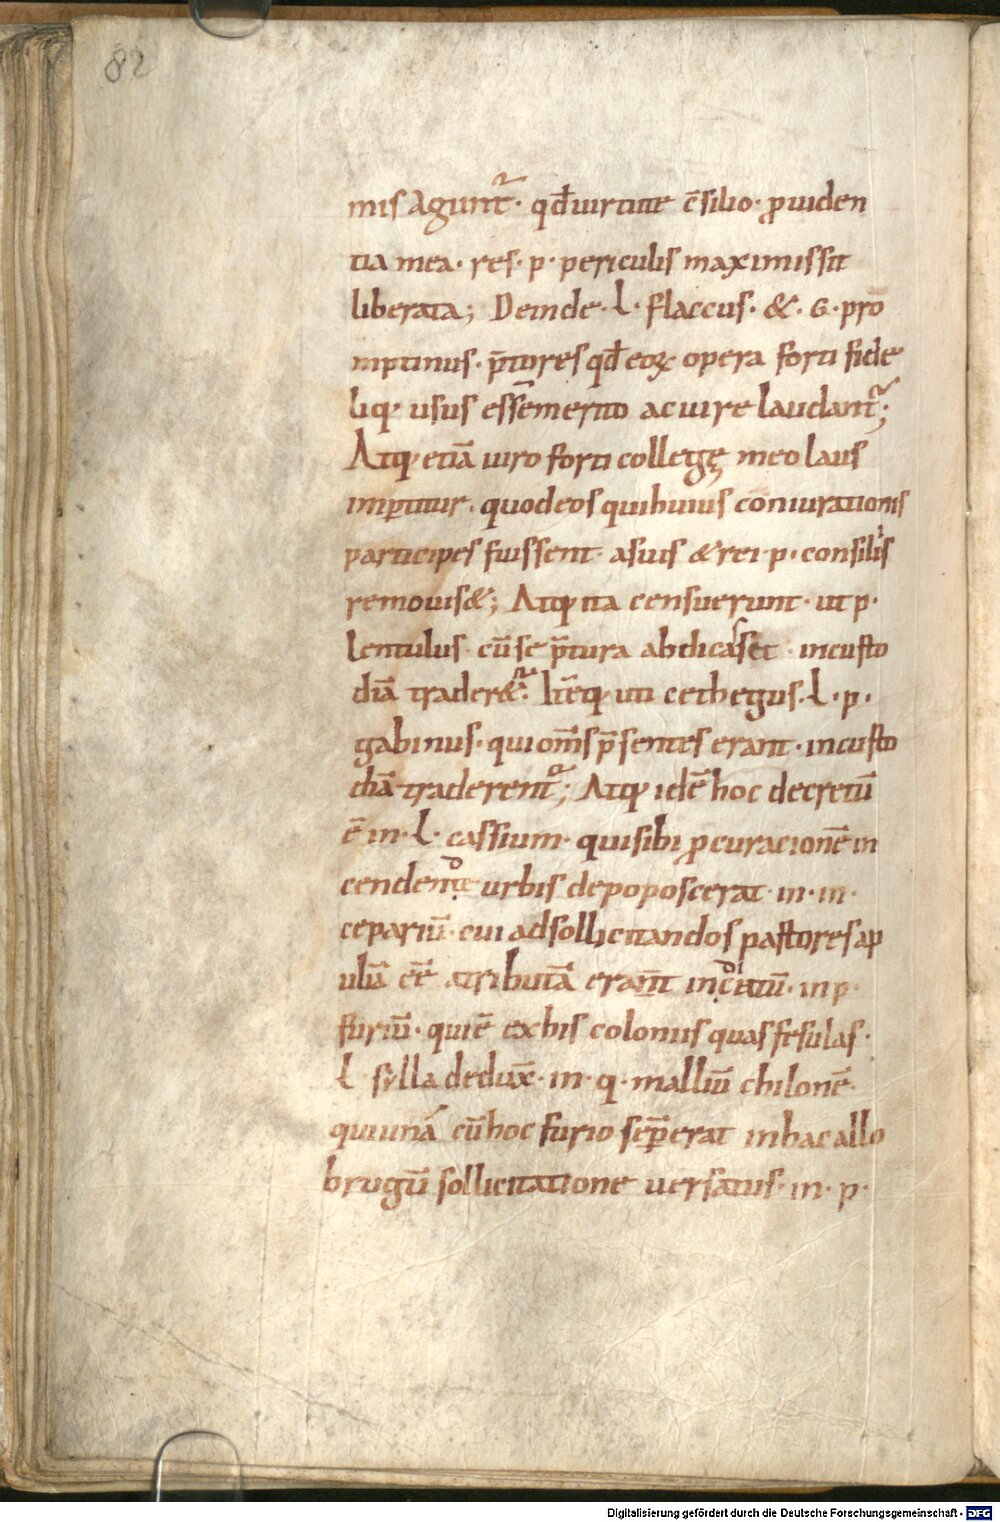 82
mis agunt᷑· qđ uirtute c̄silio· ꝓuiden
tia mea· res· p· periculis maximis sit
liberata; Deinde· L· flaccus· &· G· pro
mptinus· p̄tores qđ eoꝝ opera forti fide
liq; usus ess&#773;em merito ac uire laudant᷑;
Atq; etiā uiro forti collegę meo laus
imꝑtitur· quod eos qui huius coniurationis
participes fuissent· a suis & rei· p· consiliis
remouis&; Atq; ita censuerunt· ut p·
lentulus cū se p̄tura abdicasset incusto
diā trader&᷑· Itēq; uti cethegus· L· p·
gabinus· qui om̄s p̄sentes erant· incusto
diā traderent᷑; Atq; idē hoc decretū
ē in· L· cassium· qui sibi ꝓcuracionē in
cendendę urbis depoposcerat· in· m·
cepariū· cui ad sollicitandos pastores ap
uliā eē atributā erant indicitū· in p·
furiū· qui ē ex his coloniis quas fesulas·
L· sylla dedux̄· in· q· malliū chilonē·
qui unā cū hoc furio semꝑ erat in hac allo
brugū sollicitatione uersatus· in· p·
Digitalisierung gefördert durch die Deutsche Forschungsgemeinschaft - DFG